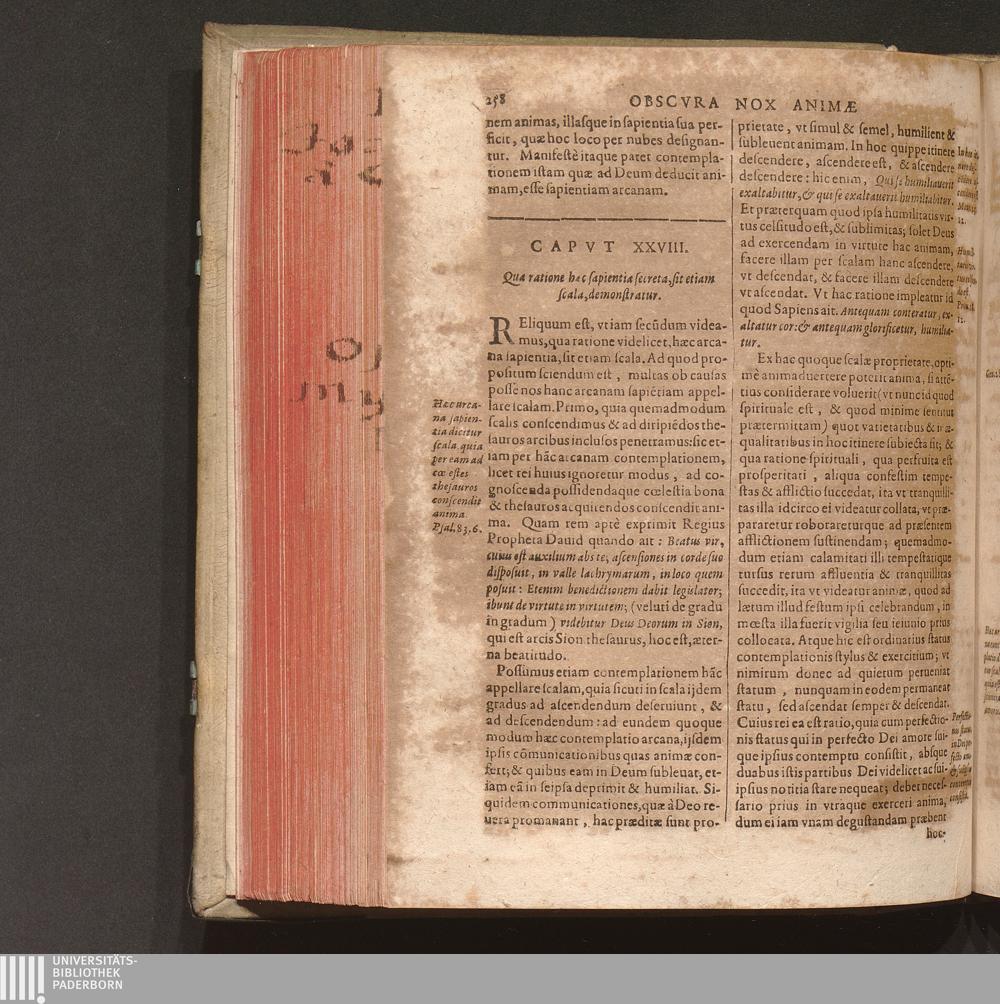 258
OBSCVRA NOX ANIMÆ
nem animas, illasque in sapientia sua per-
ficit, quæ hoc loco per nubes designan-
tur. Manifestè itaque patet contempla-
tionem istam quæ ad Deum deducit ani-
mam, esse sapientiam arcanam.
CAPVT XXVIII.
Qua ratione hæc sapientia secreta, sit etiam
scala, demonstratur.
REliquum est, vt iam secũdum videa-
mus, qua ratione videlicet, hæc arca-
na sapientia, sit etiam scala. Ad quod pro-
positum sciendum est, multas ob causas
posse nos hanc arcanam sapiẽtiam appel-
lare scalam. Primo, quia quemadmodum
scalis conscendimus & ad diripiẽdos the-
sauros arcibus inclusos penetramus: sic et-
iam per hãc arcanam contemplationem,
licet rei huius ignoretur modus, ad co-
gnoscenda possidendaque cœlestia bona
& thesauros acquirendos conscendit ani-
ma. Quam rem aptè exprimit Regius
Propheta Dauid quando ait: Beatus vir,
cuius est auxilium abs te, ascensiones in corde suo
disposuit, in valle lachrymarum, in loco quem
posuit: Etenim benedictionem dabit legislator;
ibunt de virtute in virtutem; (veluti de gradu
in gradum) videbitur Deus Deorum in Sion,
qui est arcis Sion thesaurus, hoc est, æter-
na beatitudo.
Possumus etiam contemplationem hãc
appellare scalam, quia sicuti in scala ijdem
gradus ad ascendendum deseruiunt, &
ad descendendum: ad eundem quoque
modum hæc contemplatio arcana, ijsdem
ipsis cõmunicationibus quas animæ con-
fert; & quibus eam in Deum subleuat, et-
iam eã in seipsa deprimit & humiliat. Si-
quidem communicationes, quæ à Deo re-
uera promanant, hac præditæ sunt pro-
Hæc arca-
na sapien-
tia dicitur
scala, quia
per eam ad
cœlestes
thesauros
conscendit
anima.
Psal. 83. 6.
prietate, vt simul & semel, humilient &
subleuent animam. In hoc quippe itinere
descendere, ascendere est, & ascendere
descendere: hic enim, Qui se humiliauerit
exaltabitur, & qui se exaltauerit humiliabitur.
Et præterquam quod ipsa humilitatis vir-
tus celsitudo est, & sublimitas; solet Deus
ad exercendam in virtute hac animam,
facere illam per scalam hanc ascendere,
vt descendat, & facere illam descendere
vt ascendat. Vt hac ratione impleatur id
quod Sapiens ait. Antequam conteratur, ex-
altatur cor: & antequam glorificetur, humilia-
tur.
Ex hac quoque scalæ proprietate, opti-
mè animaduertere poterit anima, si attẽ-
tius considerare voluerit (vt nunc id quod
spirituale est, & quod minime sentitur
prætermittam) quot varietatibus & inæ-
qualitatibus in hoc itinere subiecta sit; &
qua ratione spirituali, qua perfruita est
prosperitati, aliqua confestim tempe-
stas & afflictio succedat, ita vt tranquilli-
tas illa idcirco ei videatur collata, vt præ-
pararetur roborareturque ad præsentem
afflictionem sustinendam; quemadmo-
dum etiam calamitati illi tempestatique
rursus rerum affluentia & tranquillitas
succedit, ita vt videatur animæ, quod ad
lætum illud festum ipsi celebrandum, in
mœsta illa fuerit vigilia seu ieiunio prius
collocata. Atque hic est ordinatius status
contemplationis stylus & exercitium; vt
nimirum donec ad quietum perueniat
statum, nunquam in eodem permaneat
statu, sed ascendat semper & descendat.
Cuius rei ea est ratio, quia cum perfectio-
nis status qui in perfecto Dei amore sui-
que ipsius contemptu consistit, absque
duabus istis partibus Dei videlicet ac sui-
ipsius notitia stare nequeat; debet neces-
sario prius in vtraque exerceri anima,
dum ei iam vnam degustandam præbent
hoc,
UNIVERSITÄTS-
BIBLIOTHEK
PADERBORN